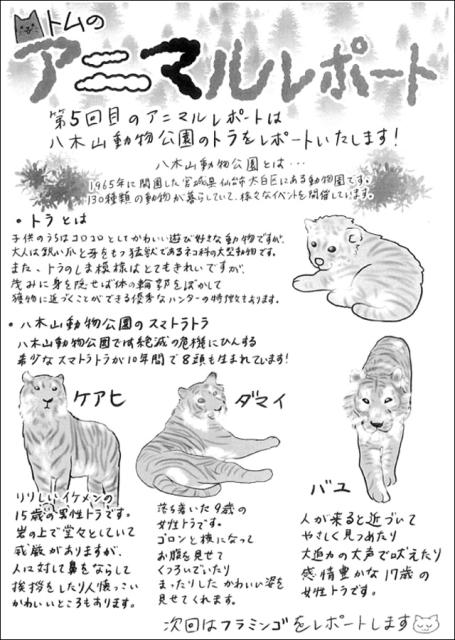 トムの
アニマルレポート
第5回目のアニマルレポートは
八木山動物公園のトラをレポートいたします!
八木山動物公園とは・・・
1965年に開園した宮城県仙台市太白区にある動物園です。
130種類の動物が暮らしていて、様々なイベントを開催しています。
・トラとは
子供のうちはコロコロとしてかわいい遊び好きな動物ですが、
大人は鋭い爪と牙をもつ猛獣であるネコ科の大型動物です。
また、トラのしま模様はとてもきれいですが、
茂みに身を隠せば体の輪郭をぼかして
獲物に近づくことができる優秀なハンターの特徴でもあります。
・八木山動物公園のスマトラトラ
八木山動物公園では絶滅の危機にひんする
希少なスマトラトラが10年間で8頭も生まれています!
ケアヒ
りりしいイケメンの
15歳の男性トラです。
岩の上で堂々としていて
威厳がありますが、
人に対して鼻をならして
挨拶をしたり人懐っこい
かわいいところもあります。
ダマイ
落ち着いた9歳の
女性トラです。
ゴロンと横になって
お腹を見せて
くつろいでいたり
まったりしたかわいい姿を
見せてくれます。
バユ
人が来ると近づいて
やさしく見つめたり
大迫力の大声で吠えたり
感情豊かな17歳の
女性トラです。
次回はフラミンゴをレポートします